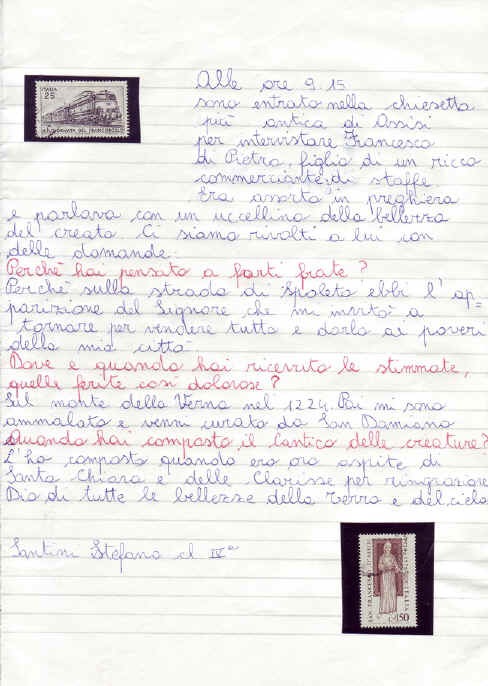 ITALIA
25
XIX GIORNATA DEL FRANCOBOLLO
Alle ore 9.15
sono entrato nella chiesetta
più antica di Assisi
per intervistare Francesco
di Pietro, figlio di un ricco
commerciante di stoffe.
Era assorto in preghiera
e parlava con un uccellino della bellezza
del creato. Ci siamo rivolti a lui con
delle domande.
Perché hai pensato a farti frate?
Perché sulla strada di Spoleto ebbi l'ap=
parizione del Signore che mi invitò a
tornare per vendere tutto e darlo ai poveri
della mia città.
Dove e quando hai ricevuto le stimmate,
quelle ferite così dolorose?
Sul monte della Verna nel 1224. Poi mi sono
ammalato e venni curato da San Damiano
Quando hai composto il Cantico delle creature?
L'ho composto quando ero ospite di
Santa Chiara e delle Clarisse per ringraziare
Dio di tutte le bellezze della Terra e del cielo
Santini Stefano cl IVa
SAN FRANCESCO D'ASSISI
POSTE ITALIA
L.150